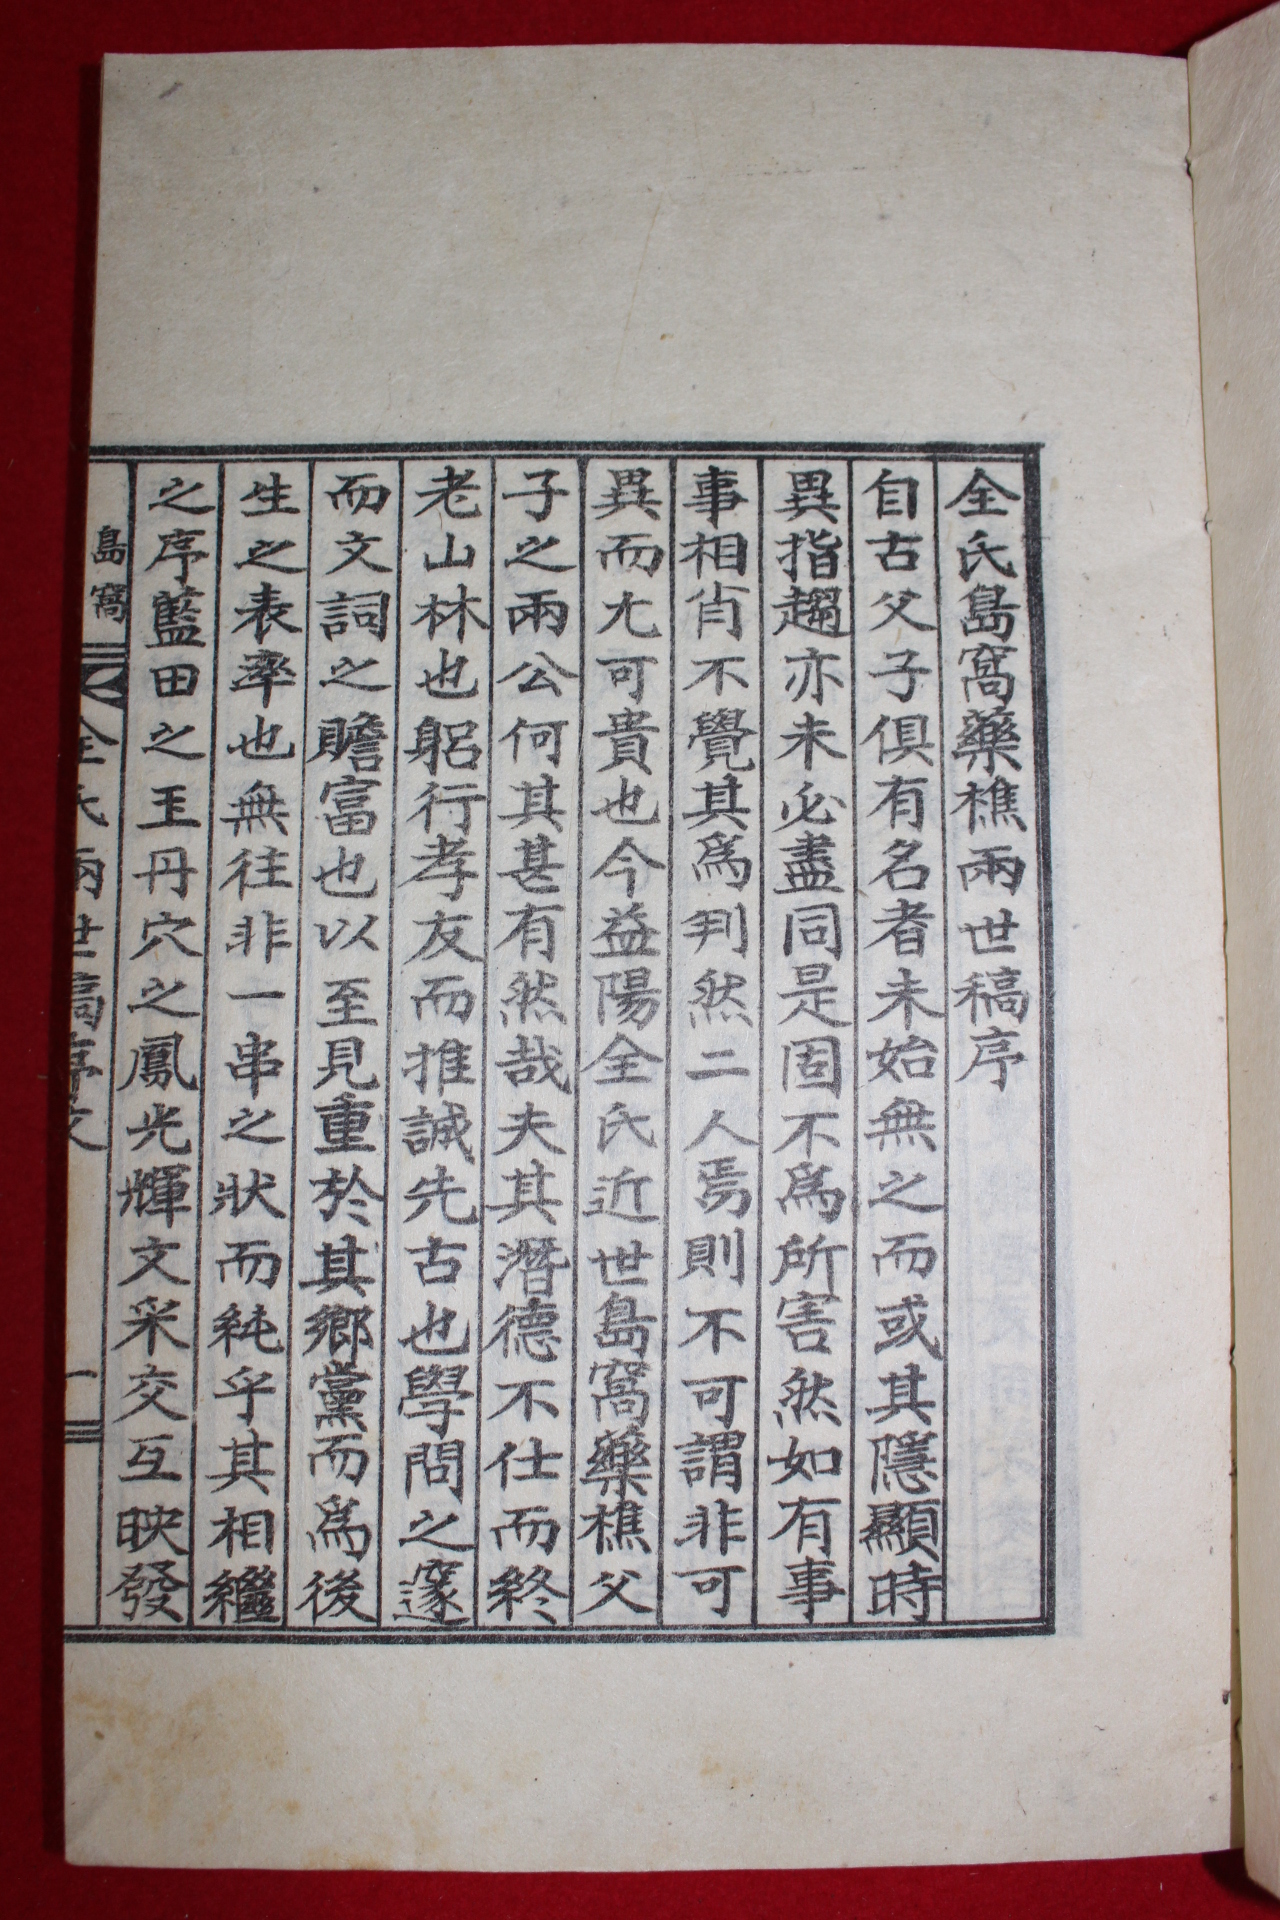 全氏島窩藥樵兩世稿序
自古父子俱有名者未始無之而或其隱顯時
異指趨亦未必盡同是固不爲所害然如有事
事相肖不覺其爲判然二人焉則不可謂非可
異而尤可貴也今益陽全氏近世島窩藥樵父
子之兩公何其甚有然哉夫其潛德不仕而終
老山林也躬行孝友而推誠先古也學問之邃
而文詞之贍富也以至見重於其鄕黨而爲後
生之表率也無往非一串之狀而純乎其相繼
之序藍田之玉丹穴之鳳光輝文采交互映發
島窩 全氏兩世稿序文 一